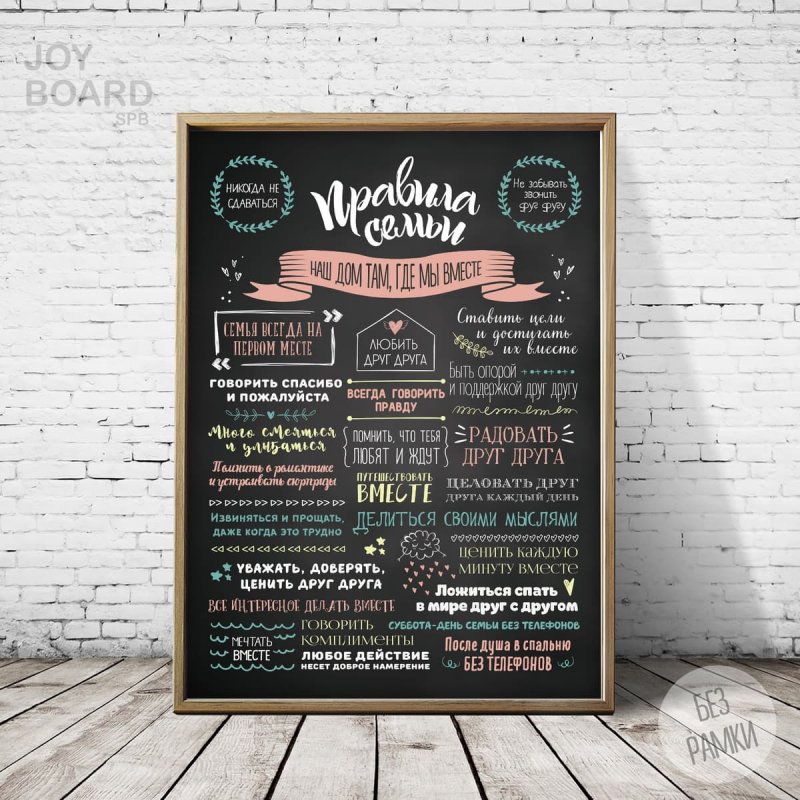 JOY
BOARD
SPB
НИКОГДА НЕ
СДАВАТЬСЯ
Правила
семьи
Не забывать
звонить
друг другу
НАШ ДОМ ТАМ, ГДЕ МЫ ВМЕСТЕ
СЕМЬЯ ВСЕГДА НА
ПЕРВОМ МЕСТЕ
ЛЮБИТЬ
ДРУГ ДРУГА
Ставить цели
и достигать
их вместе
ГОВОРИТЬ СПАСИБО
И ПОЖАЛУЙСТА
ВСЕГДА ГОВОРИТЬ
ПРАВДУ
Быть опорой
и поддержкой друг другу
Много смеяться
и улыбаться
ПОМНИТЬ, ЧТО ТЕБЯ
ЛЮБЯТ И ЖДУТ
РАДОВАТЬ
ДРУГ ДРУГА
Помнить о романтике
и устраивать сюрпризы
ПУТЕШЕСТВОВАТЬ
ВМЕСТЕ
ЦЕЛОВАТЬ ДРУГ
ДРУГА КАЖДЫЙ ДЕНЬ
Извиняться и прощать,
даже когда это трудно
ДЕЛИТЬСЯ СВОИМИ МЫСЛЯМИ
УВАЖАТЬ, ДОВЕРЯТЬ,
ЦЕНИТЬ ДРУГ ДРУГА
ЦЕНИТЬ КАЖДУЮ
МИНУТУ ВМЕСТЕ
Ложиться спать
в мире друг с другом
ВСЕ ИНТЕРЕСНОЕ ДЕЛАТЬ ВМЕСТЕ
МЕЧТАТЬ
ВМЕСТЕ
ГОВОРИТЬ
КОМПЛИМЕНТЫ
ЛЮБОЕ ДЕЙСТВИЕ
НЕСЕТ ДОБРОЕ НАМЕРЕНИЕ
СУББОТА-ДЕНЬ СЕМЬИ БЕЗ ТЕЛЕФОНОВ
После душа в спальню
БЕЗ ТЕЛЕФОНОВ
БЕЗ
РАМКИ